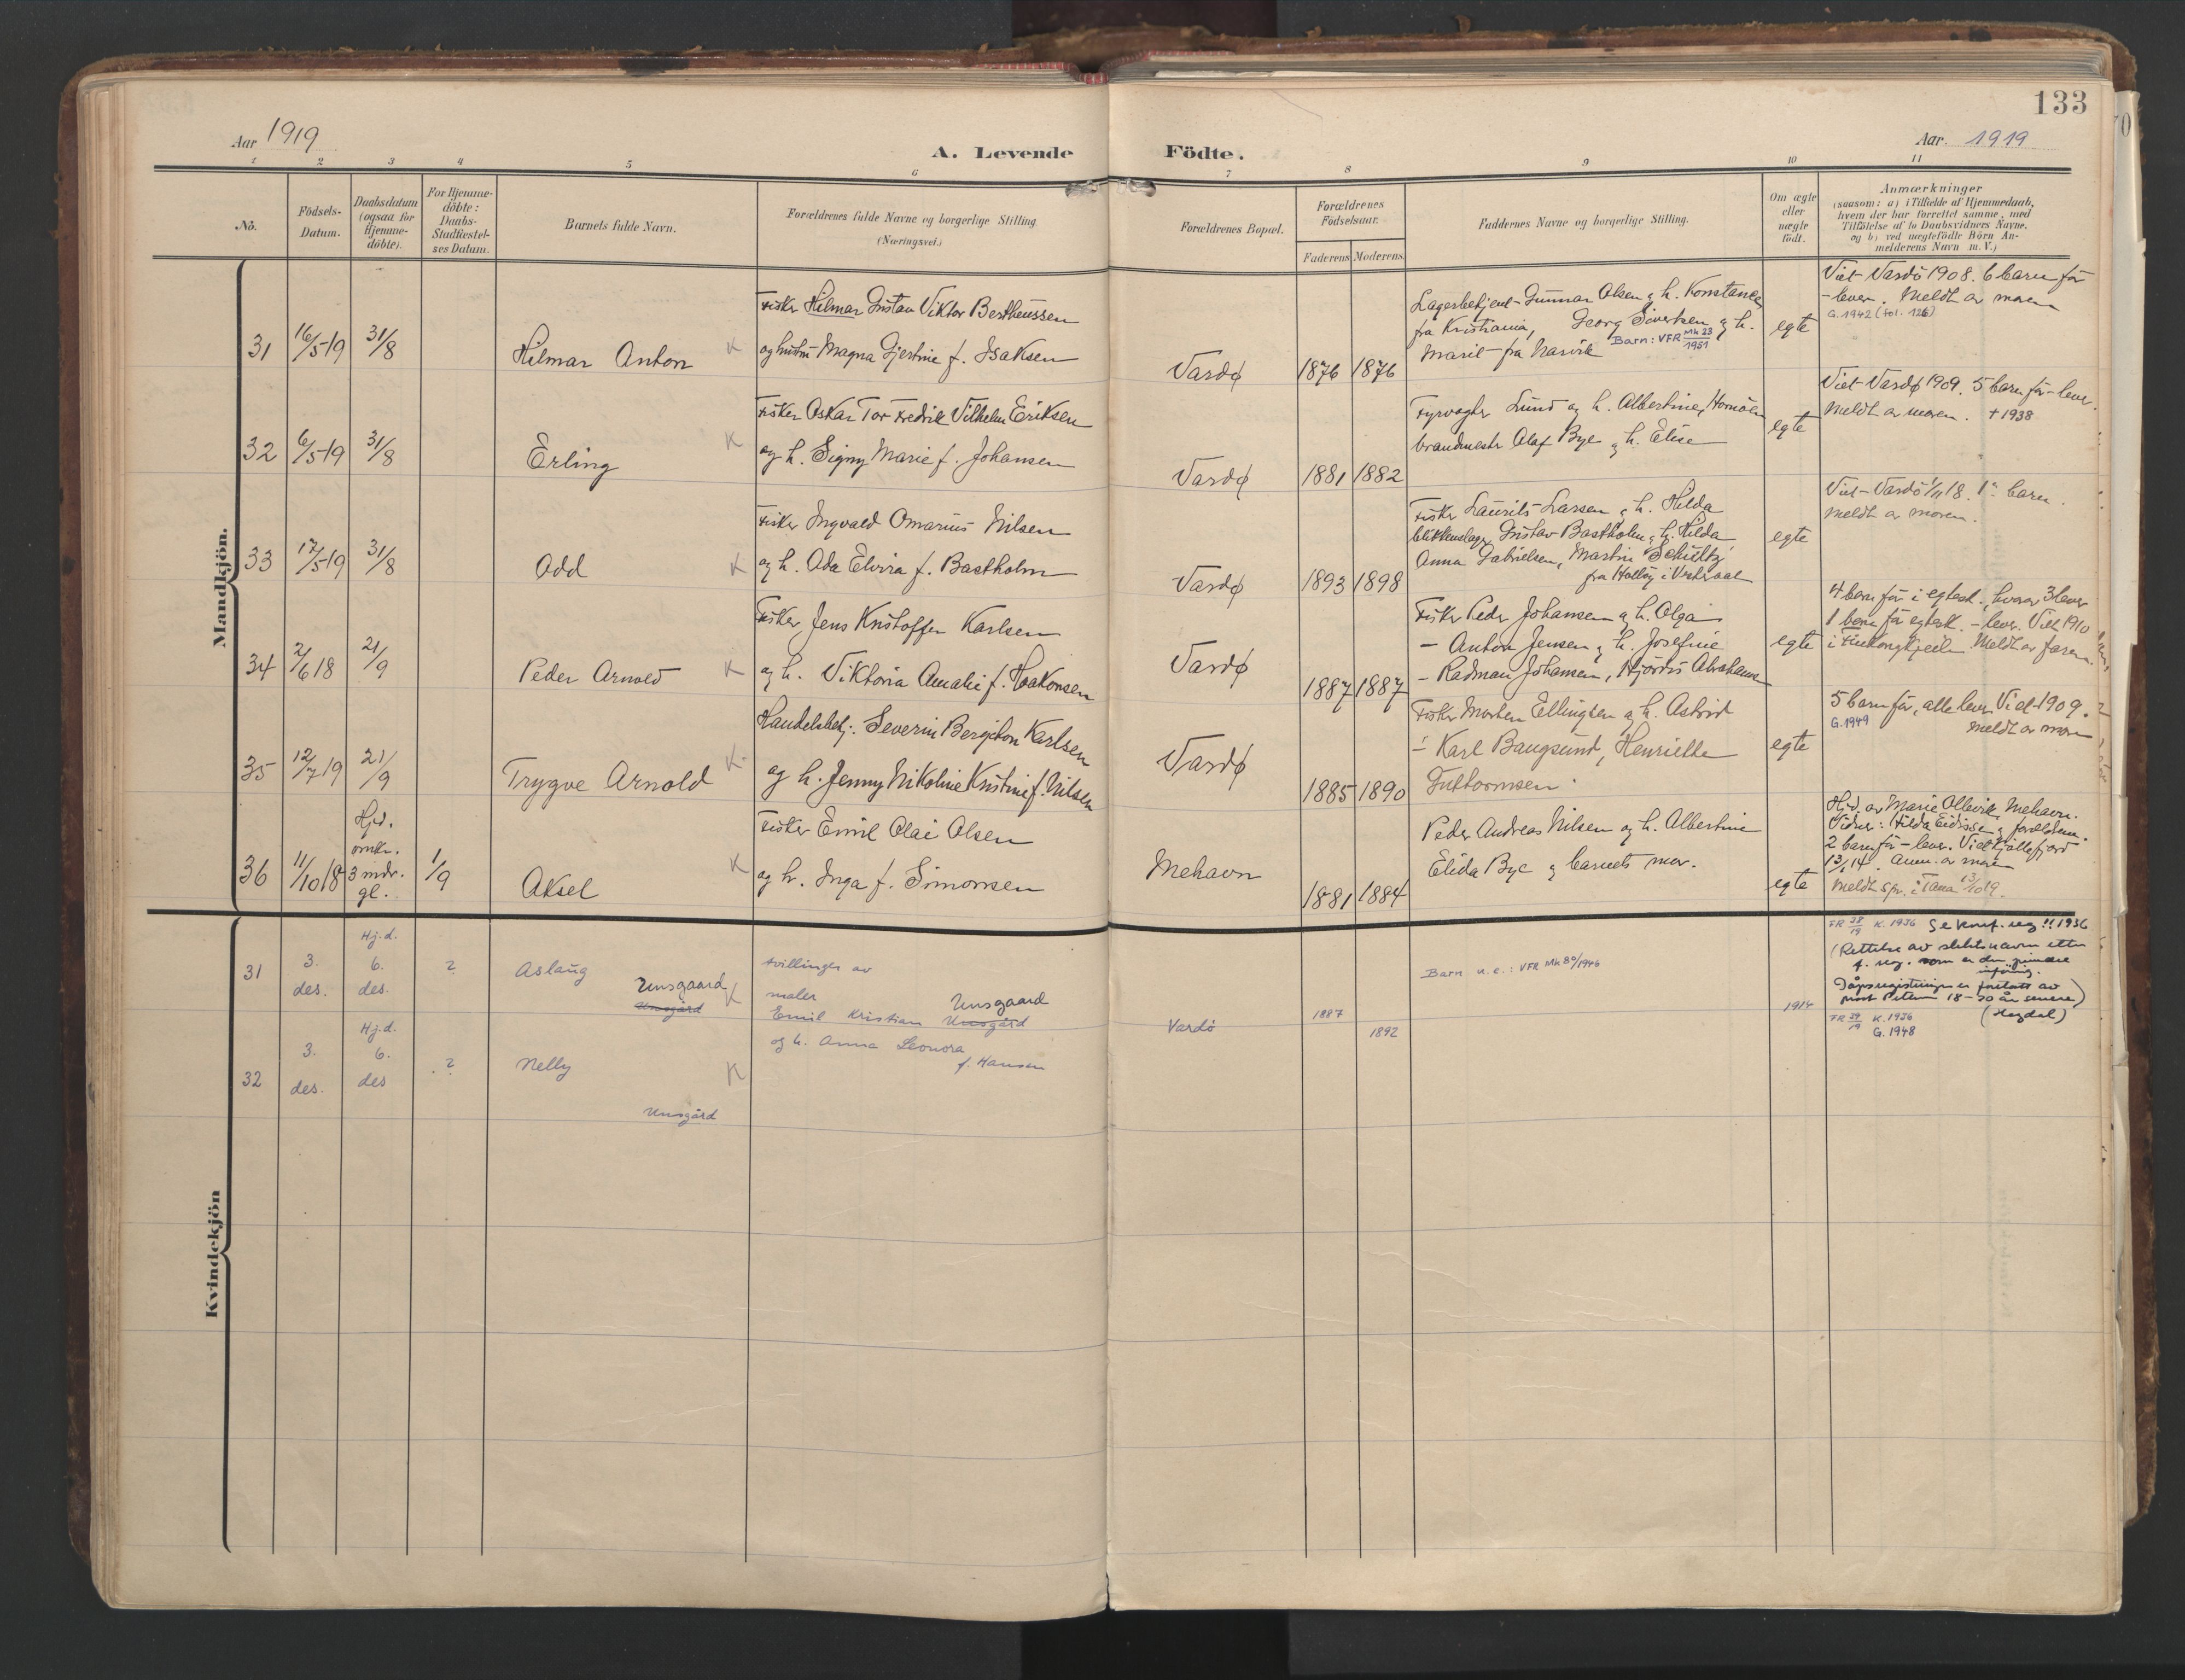 133
Aar 1919
A. Levende Födte.
Aar. 1919
1 2 3 4 5 6 7 8 9 10 11
No.
Födsels-
Datum.
Daabsdatum
(ogsaa for
Hjemme-
döbte).
For Hjemme-
döbte:
Daabs-
Stadfæstel-
ses Datum.
Barnets fulde Navn.
Forældrenes fulde Navne og borgerlige Stilling
(Næringsvei.)
Forældrenes Bopæl.
Forældrenes
Födselsaar.
Faderens Moderens
Faddernes Navne og borgerlige Stilling.
Om ægte
eller
uægte
födt.
Anmærkninger
(saasom: a) i Tilfælde af Hjemmedaab,
hvem der har forrettet samme, med
Tilföielse af to Daabsvidners Navne,
og b) ved uægtefödte Börn An-
melderens Navn m. V.)
Mandkjön.
31
16/5 19
31/8
Hilmar Anton
K
Fisker Hilmar Gustav Viktor Bertheussen
og hustru Magna Gjertine f. Isaksen
Vardø
1876 1876
Lagerbetjent Gunnar Olsen og h. Konstance
fra Kristiania, Georg Sivertsen og h.
Barn: VFR Mk 23/1951
Marit fra Narvik
egte
Viet Vardö 1908. 6 barn før
- lever. Meldt av moren
G. 1942 (fol. 126)
32
6/5 19
31/8
Erling
K
Fisker Oskar Tor Fredrik Vilhelm Eriksen
og h. Signy Marie f. Johansen
Vardø
1881 1882
Fyrvogter Lund og h. Albertine, Hornöen
brandmestr Olaf Bye og h. Elise
egte
Viet Vardø 1909. 5 barn før - lever.
Meldt av moren. + 1938
33
17/5 19
31/8
Odd
K
Fisker Ingvald Omarius Nilsen
og h. Oda Elvira f. Bastholm
Vardø
1893 1898
Fisker Laurits Larsen og h. Hilda
blikkenslager Gustav Bastholm og h. Hilda
Anna Gabrielsen, Martin Schultz
egte
Viet Vardö 1/11 18. 1ste barn.
Meldt av moren.
34
2/6 18
21/9
Peder Arnold
K
Fisker Jens Kristoffer Karlsen
og h. Viktoria Amalie f. Haakonsen
Vardø
1887 1887
Fisker Peder Johansen og h. Olga
- Anton Jensen og h. Josefine
- Radman Johansen, Hjördis Abrahamsen
egte
4 barn før i egtesk., hvorav 3 lever
1 barn før egtesk. - lever. Viet 1910
i Finkongkjeilen Meldt av faren.
35
12/7 19
21/9
Trygve Arnold
K
Handelsbetj. Severin Bergiton Karlsen
og h. Jenny Nikoline Kristine f. Nilsen
Vardø
1885 1890
Fisker Morten Ellingsen og h. Astrid
- Karl Baugsund, Henriette
Guttormsen
egte
5 barn før, alle lever. Viet 1909.
G. 1949
Meldt av moren
36
11/10 18
Hjd.
omtr.
3 mdr.
gl.
1/9
Aksel
K
Fisker Emil Olai Olsen
og h. Inga f. Simonsen
Mehavn
1881 1884
Peder Andreas Nilsen og h. Albertine
Elida Bye og barnets mor.
egte
Hjd. av Marie Ollevik, Mehavn.
Vidner: Hilda Eidissen og forældrene.
2 barn før - lever. Viet Kjöllefjord
13/1 14. Anm. av moren
Meldt spr. i Tana 13/10 19.
Kvindekjön
31
3.
des.
Hj.d.
6.
des.
?
Aslaug
Unsgaard
Unsgård
K
tvillinger av
maler
Unsgaard
Emil Kristian Unsgård
og h. Anna Leonora
f. Hansen
Vardö
1887
1892
Barn u.e.: VFR Mk 80/1946
1914
FR 38/19 K. 1936 Se konf. reg!! 1936
(Rettelse av slektsnavn etter
f. reg. som er den primære
införing.
Dåpsregistreringen er foretatt av
prost Petersen 18-20 år senere)
(Høydal)
32
3.
des.
Hj.d.
6.
des
?
Nelly
K
Unsgård
FR 39/19 K. 1936
G. 1948